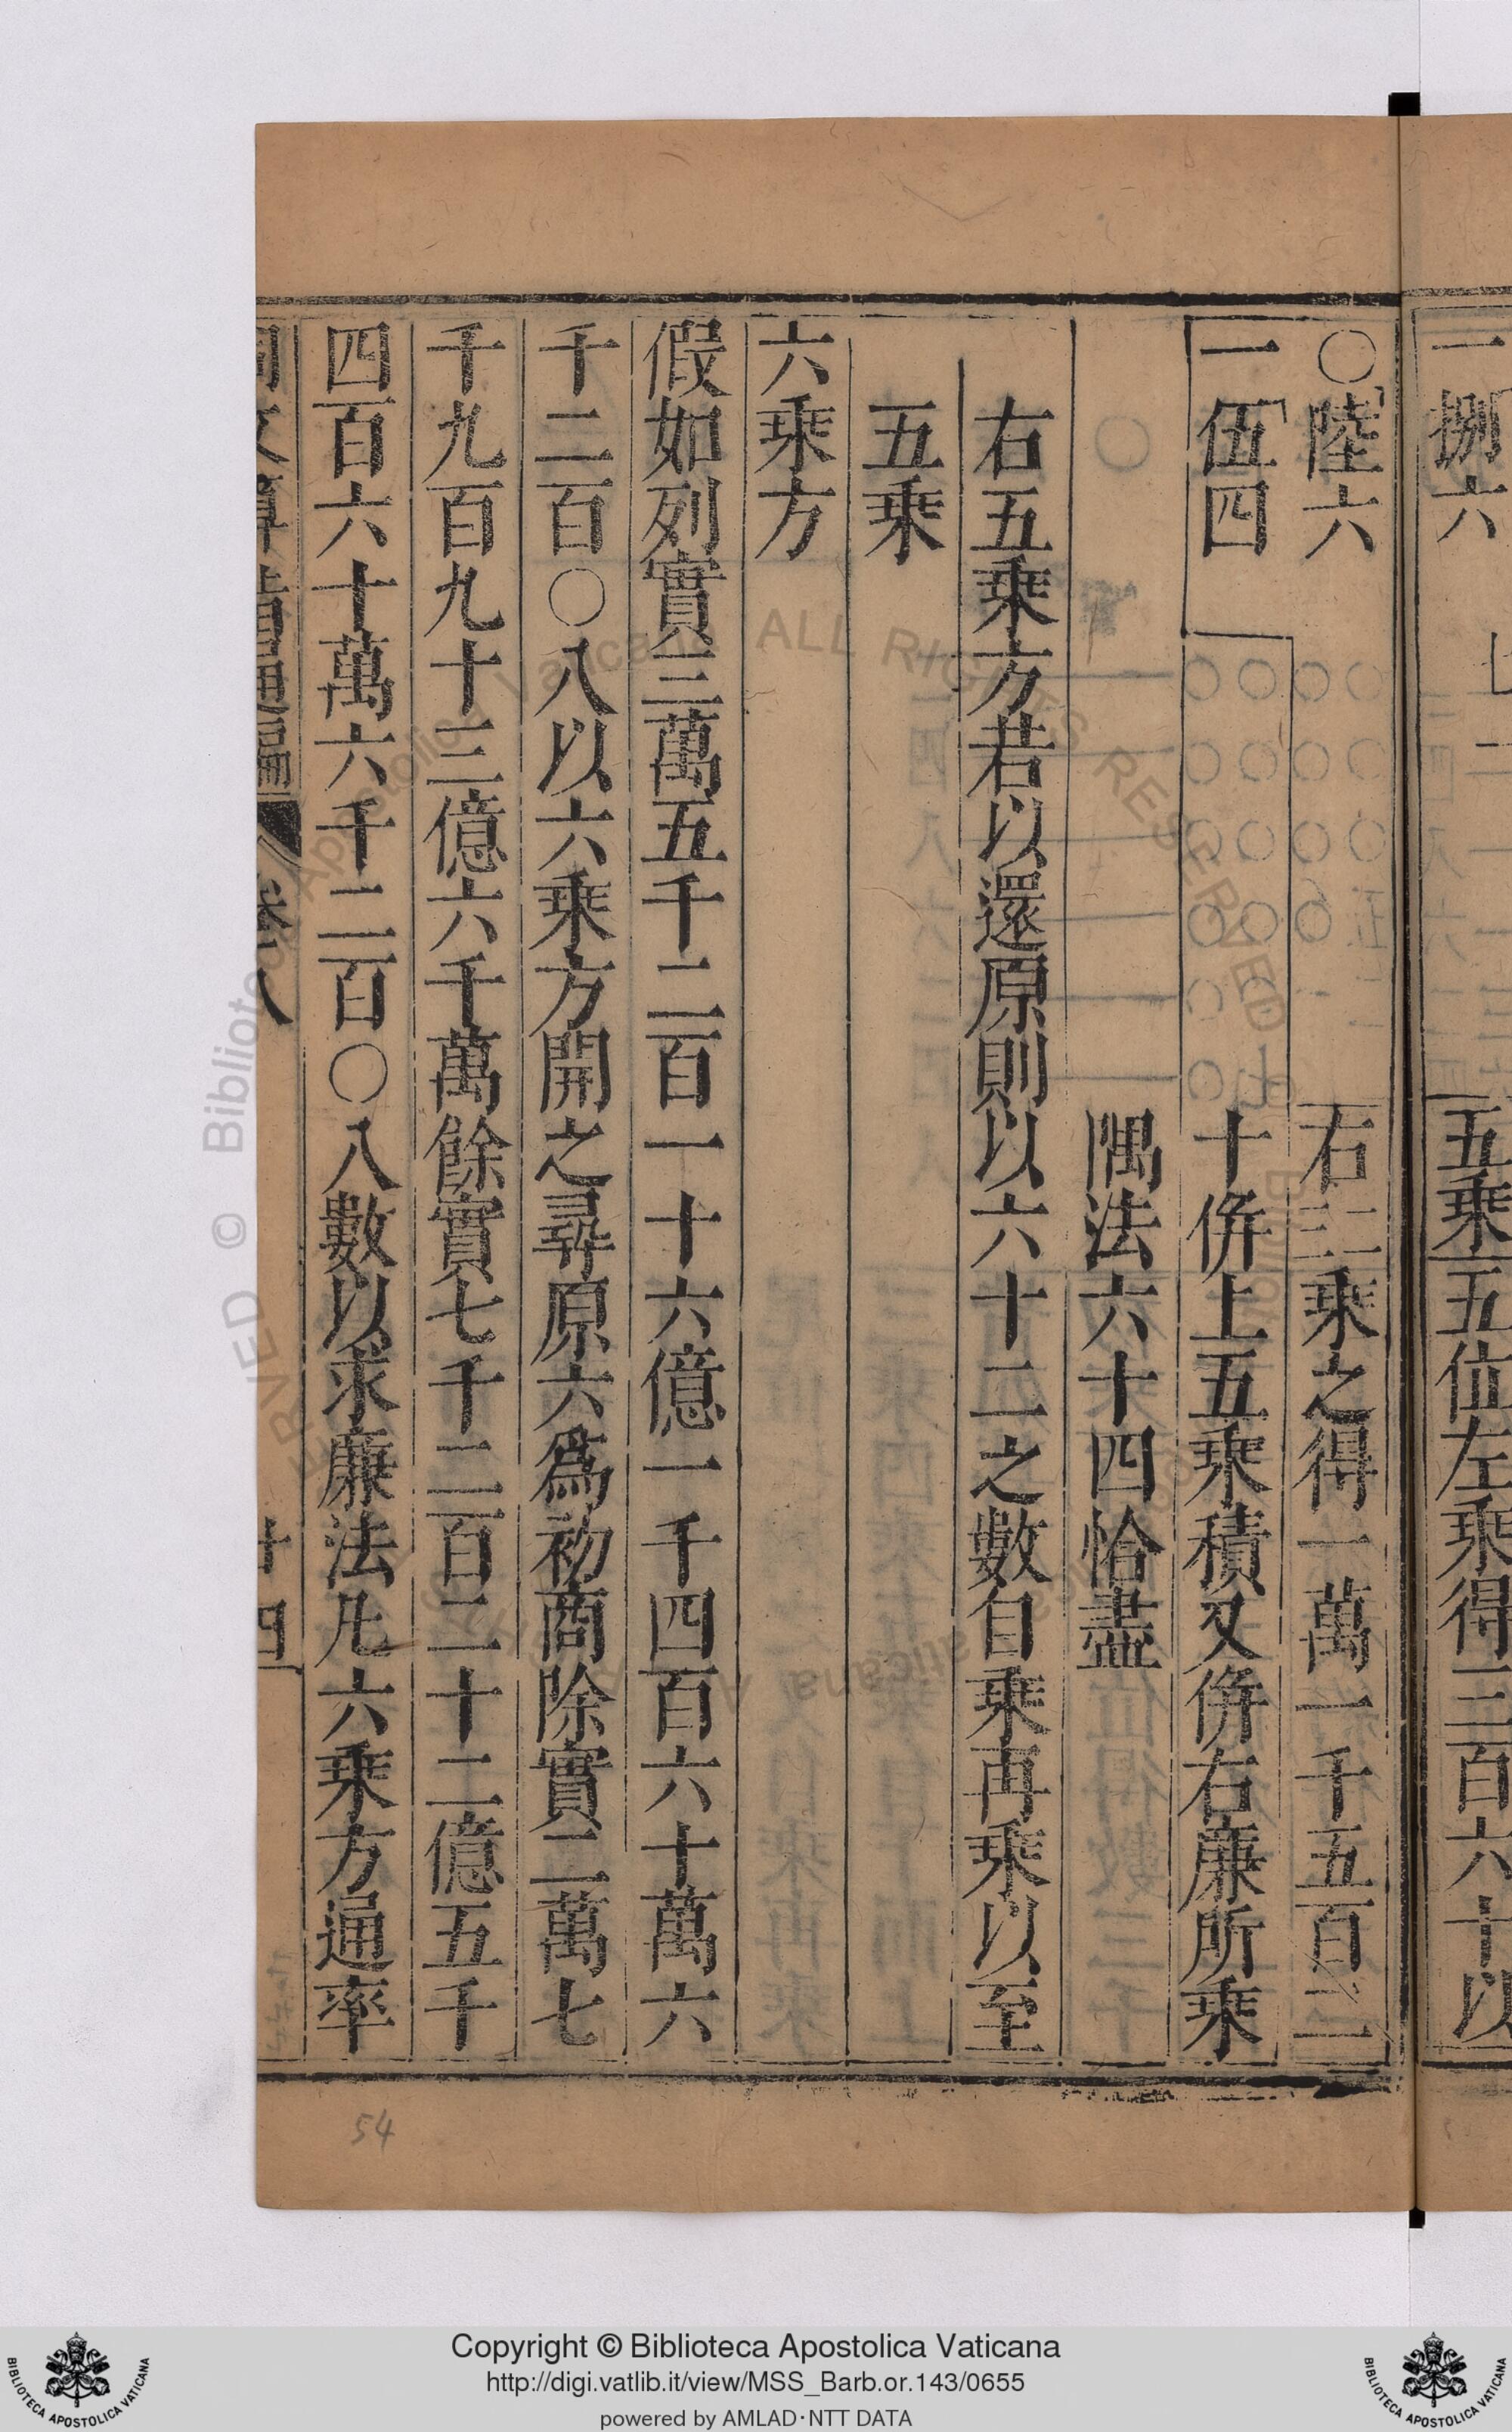 一捌六 七二 五乘五位左乘得三百六十以
〇陸六 右三乘之得一萬一千五百二
一伍四 十併上五乘積又併右廉所乘
隅法六十四恰盡
右五乘方若以還原則以六十二之數自乘再乘以至
五乘
六乘方
假如列實三萬五千二百一十六億一千四百六十萬六
千二百〇八以六乘方開之尋原六爲初商除實二萬七
千九百九十三億六千萬餘實七千二百二十二億五千
四百六十萬六千二百〇八數以求廉法凡六乘方通率
同文算指通編 卷八 十四
54
© Biblioteca Apostolica Vaticana ALL RIGHTS RESERVED
Copyright © Biblioteca Apostolica Vaticana
http://digi.vatlib.it/view/MSS_Barb.or.143/0655
powered by AMLAD·NTT DATA
BIBLIOTECA APOSTOLICA VATICANA
BIBLIOTECA APOSTOLICA VATICANA